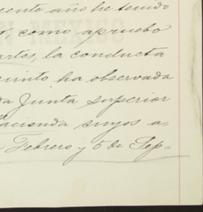 cente año he tenido
como apruebo
la conducta
ha observada
Junta superior
acienda suyos a-
Febrero y 6 de Sep-